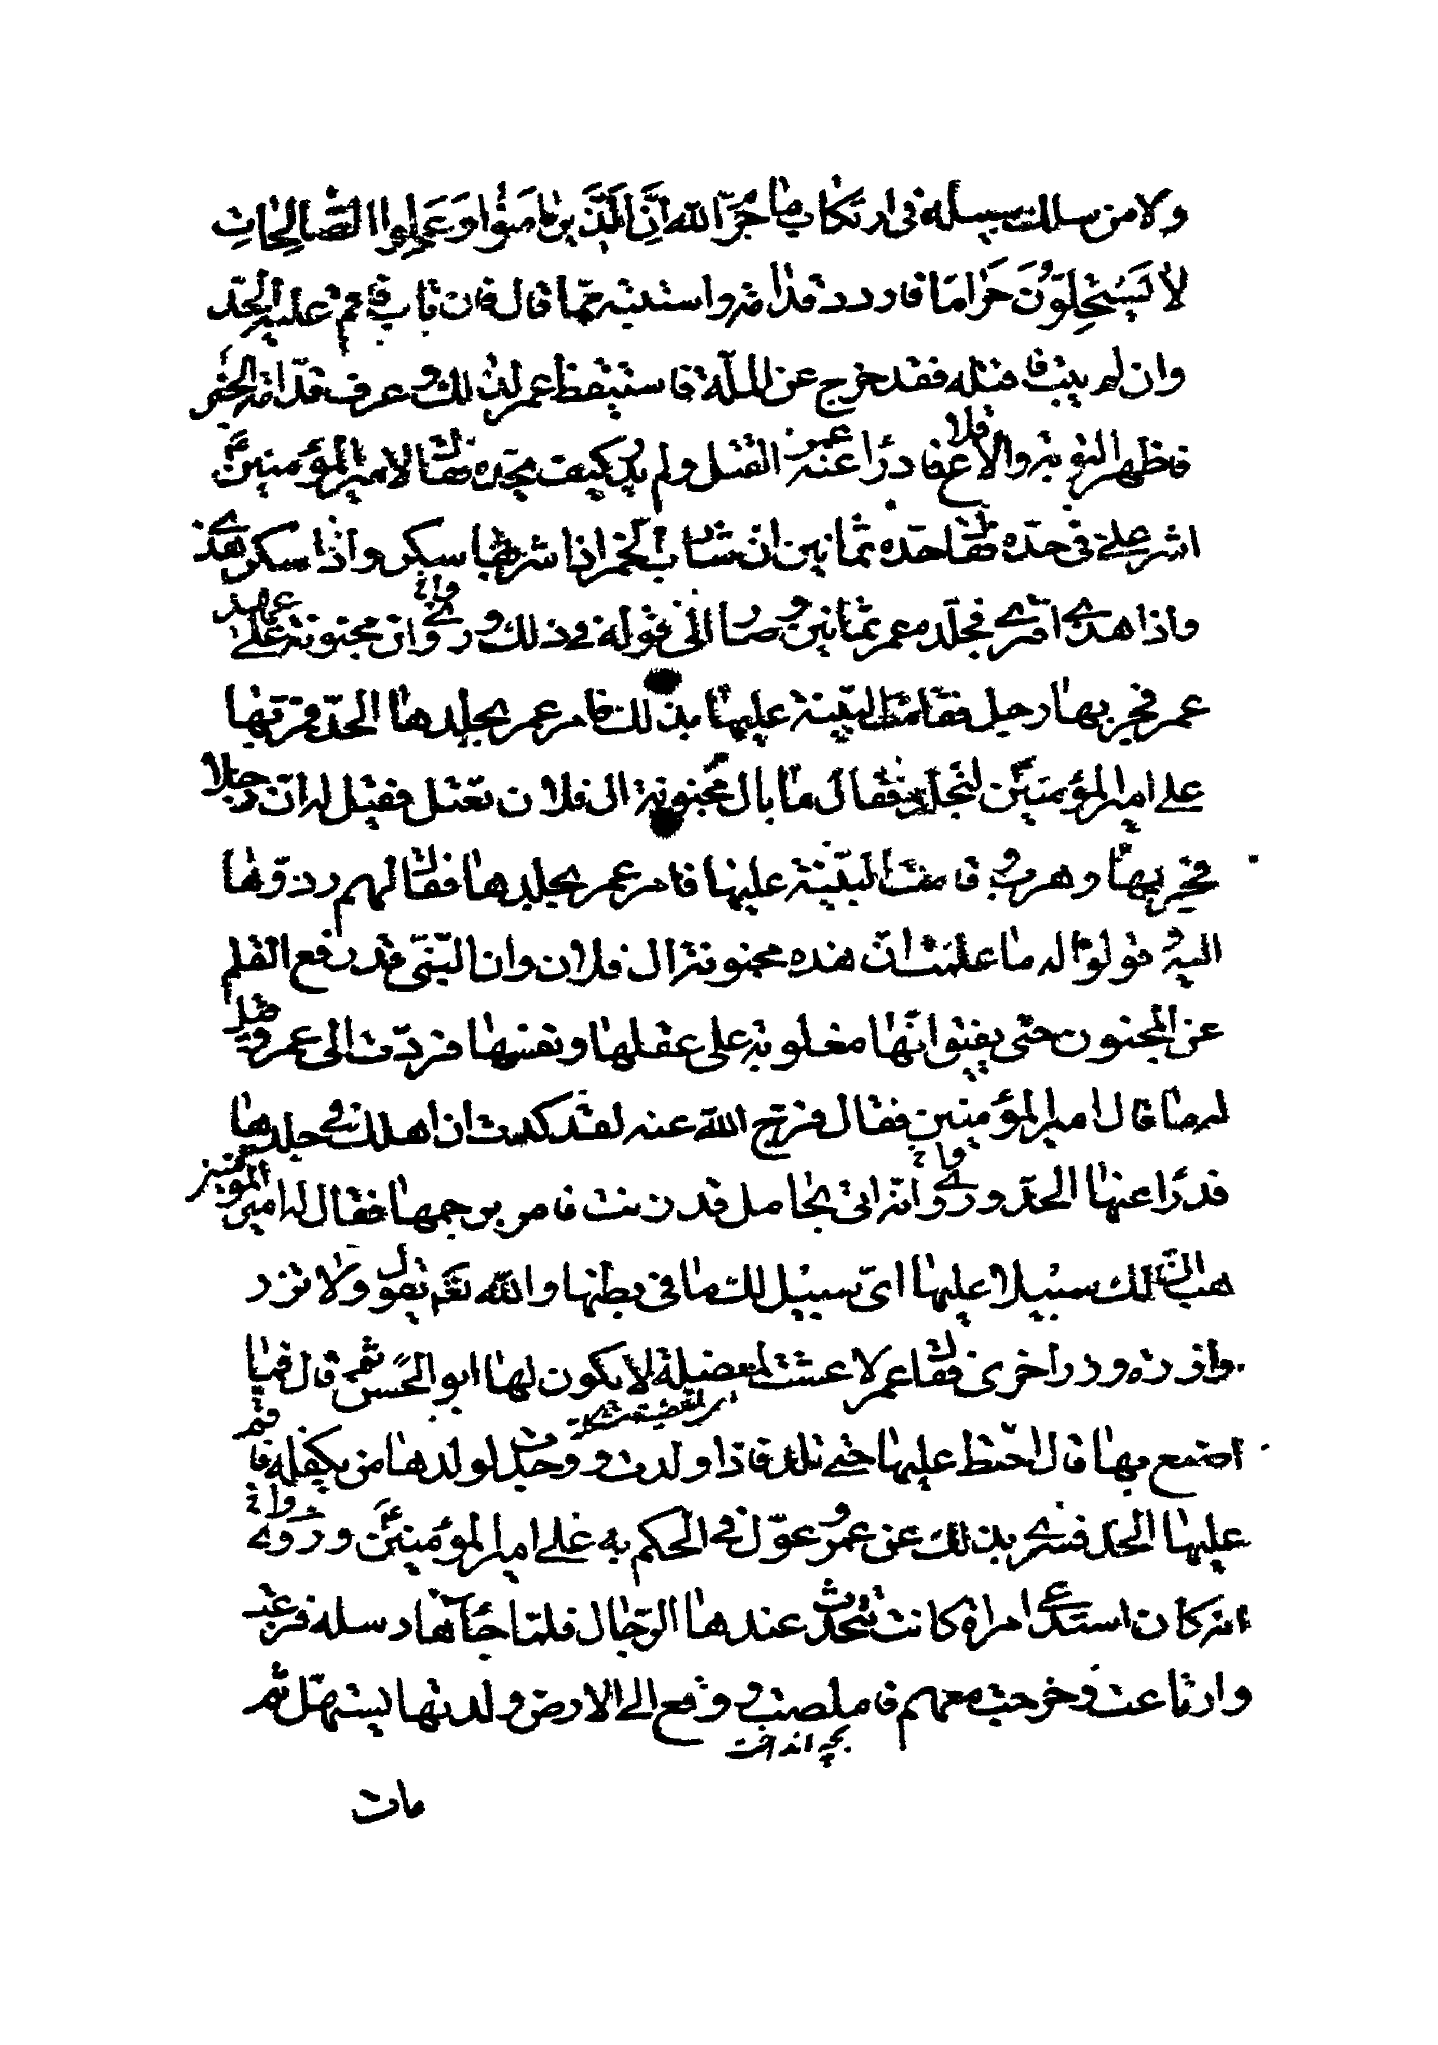 ولا من سلك سبيله في ارتكاب ما حرّم الله انّ الّذين امنوا وعملوا الصّالحات
لا يستحلّون حراما فاردد قدامة واستتبه ممّا قال فان تاب فاقم عليه الحدّ
وان لم يتب فاقتله فقد خرج عن الملّة فاستيقظ عمر لذلك وعرف قدامة الخبر
فاظهر التوبة والاقلاع فادرأ عنه عمر القتل ولم يدر كيف يحدّه فقال لامير المؤمنين ع
اشر علىّ في حدّه فقال حدّه ثمانين انّ شارب الخمر اذا شربها سكر واذا سكر هذى
واذا هذى افترى فجلده عمر ثمانين وصار الى قوله في ذلك وروى ان مجنونة على عهد
عمر فجر بها رجل فقامت البيّنة عليها بذلك فامر عمر بجلدها الحدّ فمرّ بها
على امير المؤمنين ع لتجلد فقال ما بال مجنونة ال فلان تعتل فقيل له انّ رجلا
فجر بها وهرب وقامت البيّنة عليها فامر عمر بجلدها فقال لهم ردّوها
اليه وقولوا له ما علمت انّ هذه مجنونة ال فلان وان النّبي قد رفع القلم
عن المجنون حتى يفيق انّها مغلوبة على عقلها ونفسها فردّت الى عمر وقيل
له ما قال امير المؤمنين فقال فرّج الله عنه لقد كدت ان اهلك في جلدها
فدرأ عنها الحدّ وروى انّه اتى بحامل قد زنت فامر برجمها فقال له امير المؤمنين
هب انّ لك سبيلا عليها اىّ سبيل لك ما في بطنها والله تعم يقول ولا تزر
وازرة وزر اخرى فقال عمر لا عشت لمعضلة لا يكون لها ابو الحسن ثم قال فما
اى لقضية مشكلة
اصنع بها قال احتط عليها حتى تلد فاذا ولدت ووجدت لولدها من يكفله فاقم
عليها الحد فسرى بذلك عن عمر وعوّل في الحكم به على امير المؤمنين ع وروى
انه كان استدعى امراة كانت تتحدث عندها الرّجال فلمّا جآءها رسله فزعت
وارتاعت وخرجت معهم فاملصت ووقع الى الارض ولدها يستهلّ ثم
بچه انداخت
مات